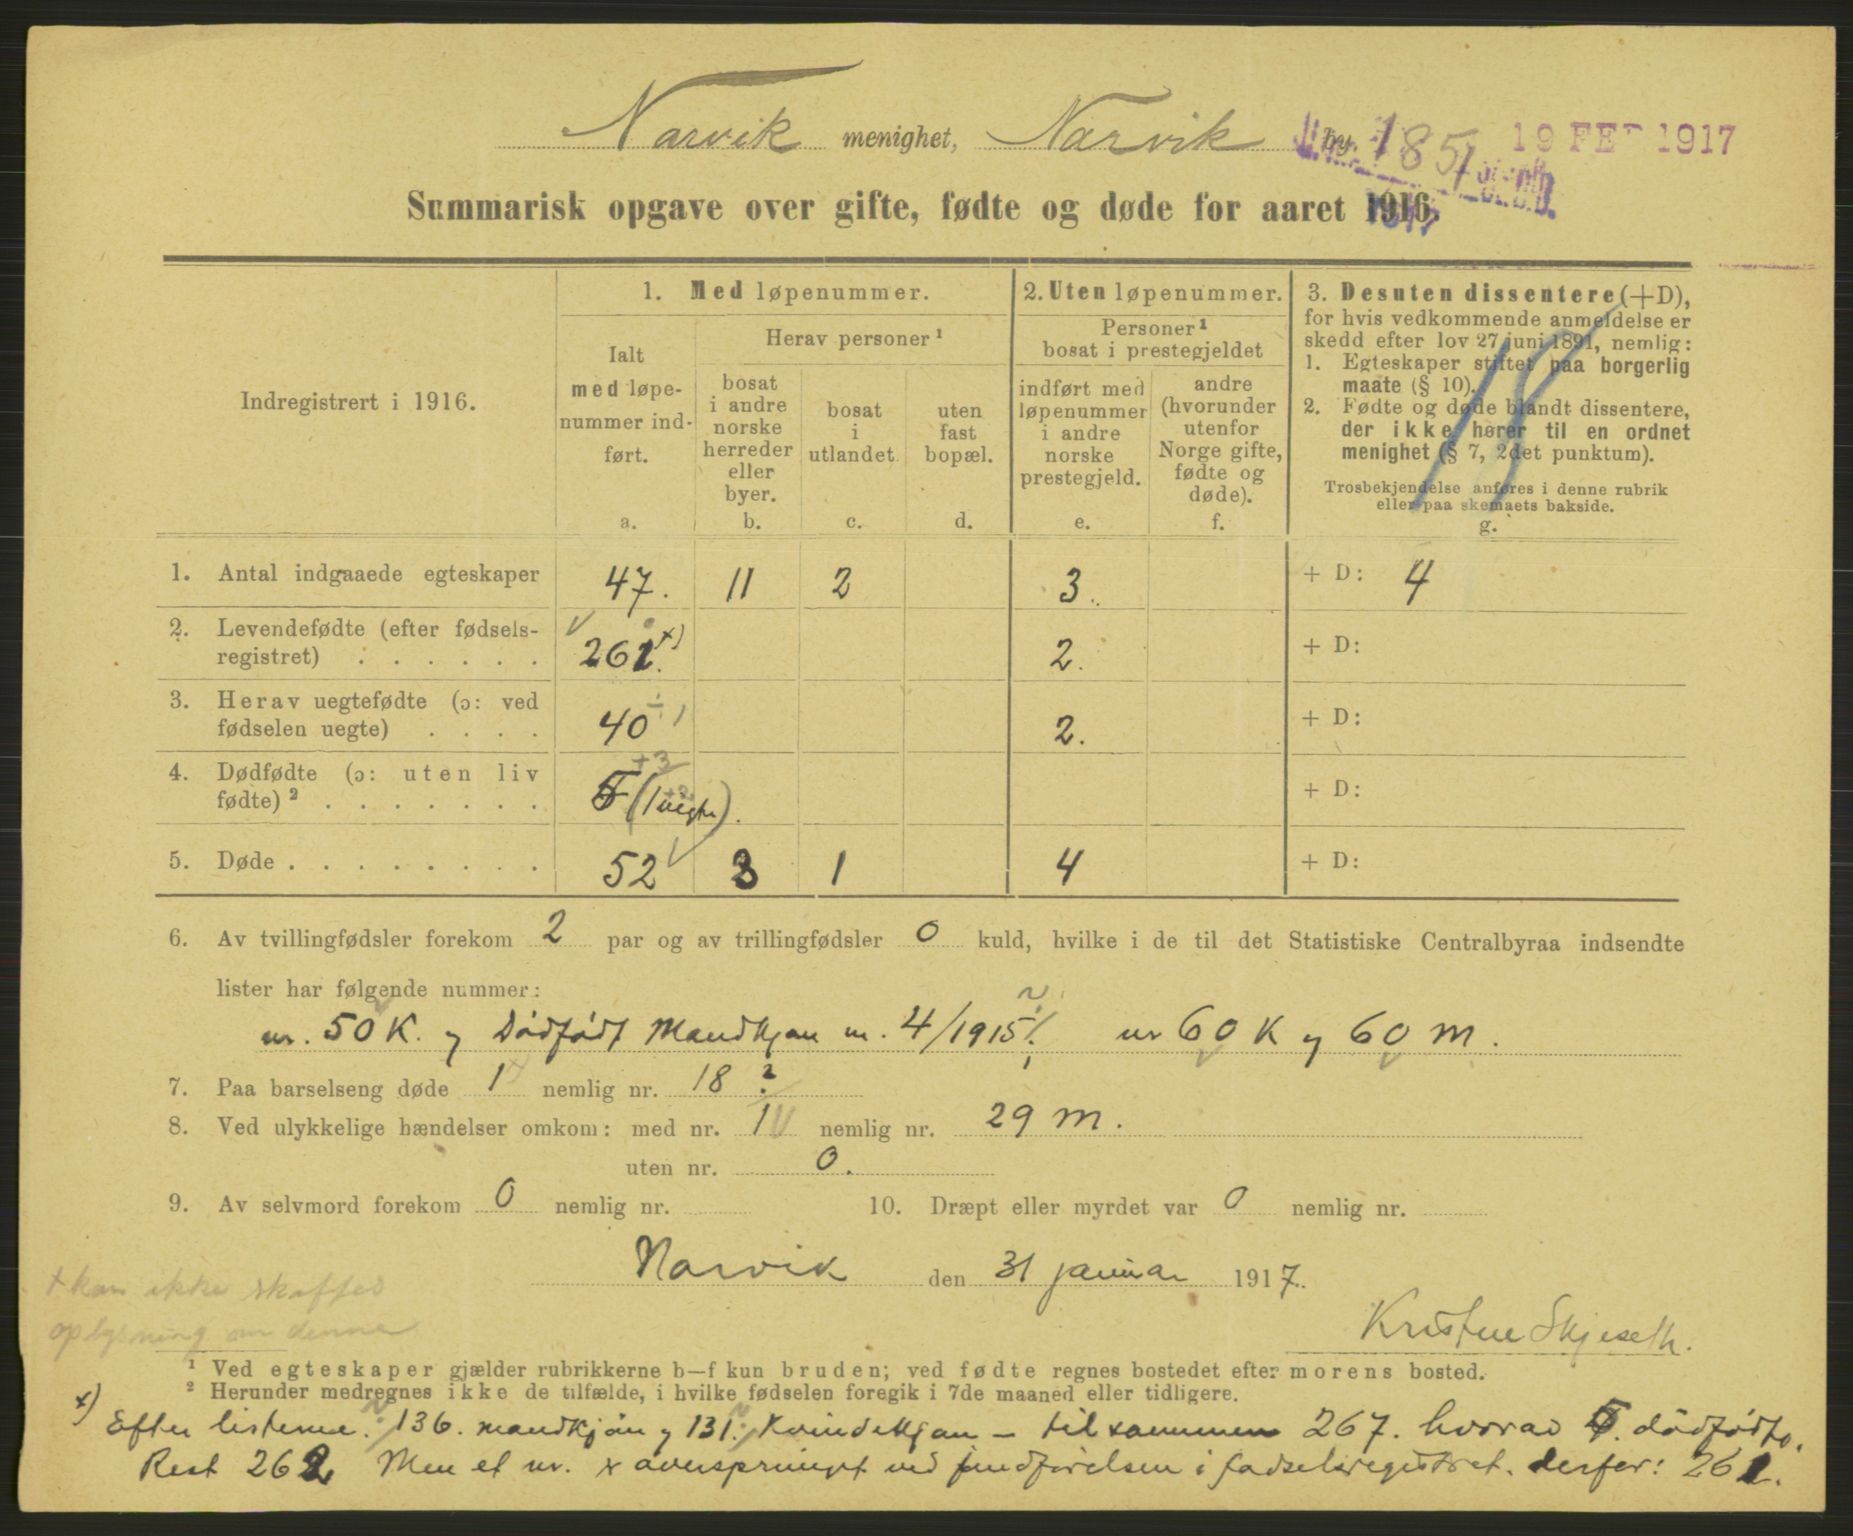 Narvik menighet, Narvik by. 1851 19 FEB 1917
Summarisk opgave over gifte, fødte og døde for aaret 1916.
Indregistrert i 1916.
1. Med løpenummer.
Ialt
med løpe-
nummer ind-
ført.
a.
Herav personer ¹
bosat
i andre
norske
herreder
eller
byer.
b.
bosat
i
utlandet
c.
uten
fast
bopæl.
d.
2. Uten løpenummer.
Personer ¹
bosat i prestegjeldet
indført med
løpenummer
i andre
norske
prestegjeld.
e.
andre
(hvorunder
utenfor
Norge gifte,
fødte og
døde).
f.
3. Desuten dissentere (+D),
for hvis vedkommende anmeldelse er
skedd efter lov 27 juni 1891, nemlig:
1. Egteskaper stiftet paa borgerlig
maate (§ 10).
2. Fødte og døde blandt dissentere,
der ikke hører til en ordnet
menighet (§ 7, 2det punktum).
Trosbekjendelse anføres i denne rubrik
eller paa skemaets bakside.
g.
1. Antal indgaaede egteskaper 47. 11 2 3. + D: 4
2. Levendefødte (efter fødsels-
registret) . . . . . . 261. x) 2. + D:
3. Herav uegtefødte (ɔ: ved
fødselen uegte) . . . . 40 ÷1 2. + D:
4. Dødfødte (ɔ: uten liv
fødte) ² . . . . . . . 5 +3 (1 uegte). + D:
5. Døde . . . . . . . . 52 3 1 4 + D:
6. Av tvillingfødsler forekom 2 par og av trillingfødsler 0 kuld, hvilke i de til det Statistiske Centralbyraa indsendte
lister har følgende nummer:
nr. 50 K. og Dødfødt Mandkjøn nr. 4/1915 nr 60 K og 60 M.
7. Paa barselseng døde 1 nemlig nr. 18
8. Ved ulykkelige hændelser omkom: med nr. 1 nemlig nr. 29 M.
uten nr. 0.
9. Av selvmord forekom 0 nemlig nr. 10. Dræpt eller myrdet var 0 nemlig nr.
Narvik den 31 januar 1917.
+ kan ikke skaffes
oplysning om denne
Kristine Skjeseth.
¹ Ved egteskaper gjælder rubrikkerne b—f kun bruden; ved fødte regnes bostedet efter morens bosted.
² Herunder medregnes ikke de tilfælde, i hvilke fødselen foregik i 7de maaned eller tidligere.
x) Efter listerne: 136. mandkjøn og 131. Kvindekjøn — tilsammen 267. hvorav 5. dødfødte.
Rest 262. Men et nr. er oversprunget ved indførelsen i fødselsregistret. derfor: 261.